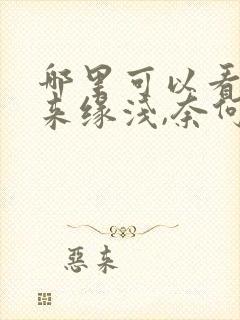 哪里可以看
来缘浅,奈何
惡来